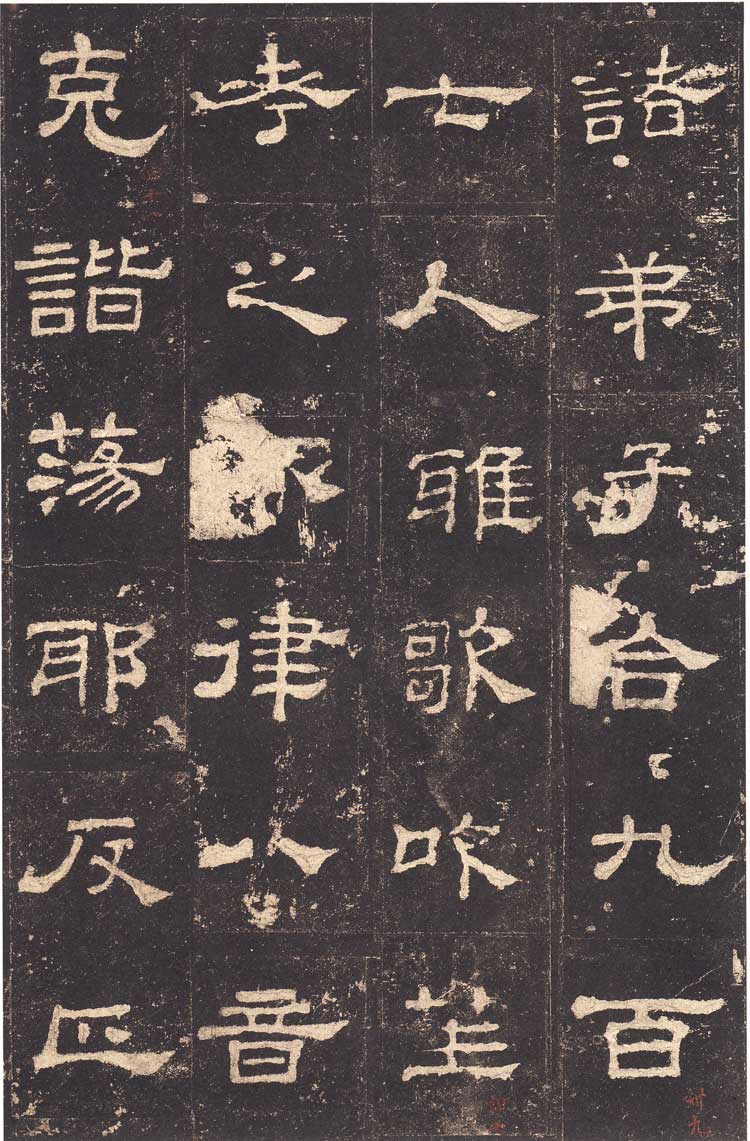 諸弟子合九百
七人雅歌吹笙
考之律八音
克諧蕩耶反正